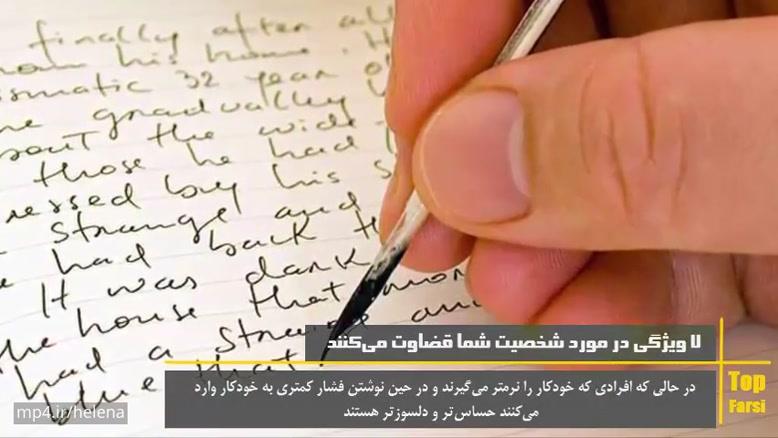 finally after all
from his home. H
ismatic 32 year o
he gradually
bout the wide
those he had
ressed by his s
strange and
e had back th
It was dark
the house that mor
had a strange and
blue that
۷ ویژگی در مورد شخصیت شما قضاوت می‌کنند
در حالی که افرادی که خودکار را نرمتر می‌گیرند و در حین نوشتن فشار کمتری به خودکار وارد
می‌کنند حساس‌تر و دلسوزتر هستند
Top
Farsi
mp4.ir/helena